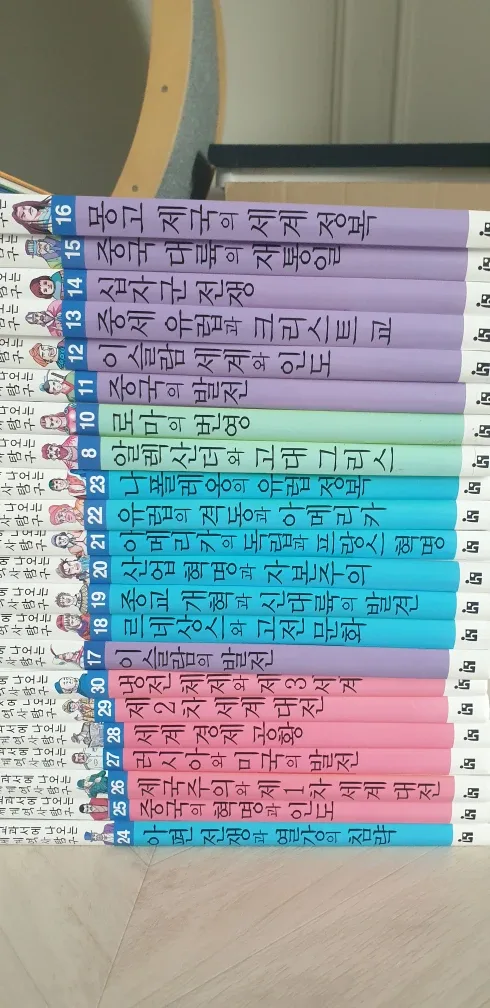 16 몽고 제국의 세계 정복
15 중국 대륙의 재통일
14 십자군 전쟁
13 중세 유럽과 크리스트 교
12 이슬람 세계와 인도
11 중국의 발전
10 로마의 번영
8 알렉산더와 고대 그리스
23 나폴레옹의 유럽 정복
22 유럽의 격동과 아메리카
21 아메리카의 독립과 프랑스 혁명
20 산업 혁명과 자본주의
19 종교 개혁과 신대륙의 발견
18 르네상스와 고전 문화
17 이슬람의 발전
30 냉전 체제와 제3세계
29 제2차 세계 대전
28 세계 경제 공황
27 러시아와 미국의 발전
26 제국주의와 제1차 세계 대전
25 중국의 혁명과 인도
24 아편 전쟁과 열강의 침략